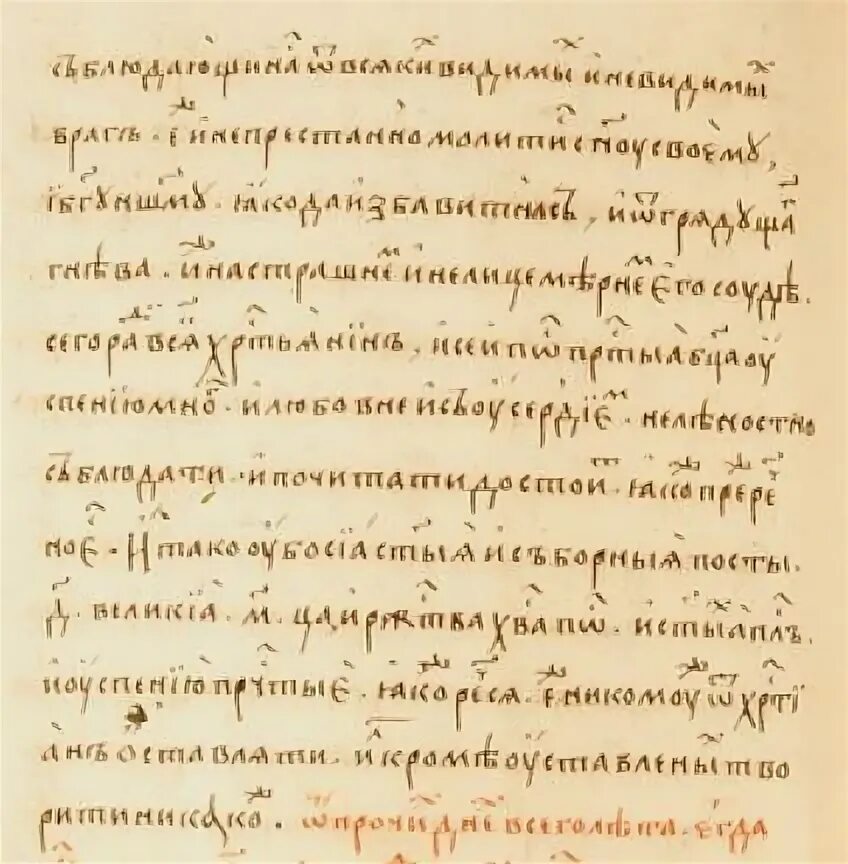 съблюдающи на ѿ всякиⷯ видимыⷯ и невидимыⷯ
врагъ. и непрестанно молити сн҃оу своемꙋ,
яко да избавит насъ, и ѿ грядꙋща
гнѣва. и на страшнеⷨ и нелицемѣрнеⷨ его соудѣ.
сего раⷣ всѣⷨ хрⷭтьяниⷩнъ, и сей поⷭ прⷭтыа бц҃а оу
спению мноⷢ. и любовне и съ оусердїеⷨ. нелѣностно
съблюдати. и почитати достоиⷮ. якоⷤ прерⷱе
ноⷭ е. И тако оубо сіа с҃тыя и съборныя посты.
д҃. великіа. м҃. ца и ржⷭтва хв҃а поⷭ. и с҃тыⷯ ап҃лъ.
и оуспению прⷱтыеⷭ. якоⷤ речеся. никомоуⷤ ѿ хрⷭтї
анъ оставляти. и кромѣ оуставленыⷯ тво
рити никакоⷤ. ѿ прочиⷯ днеⷯ всего лѣта. егда